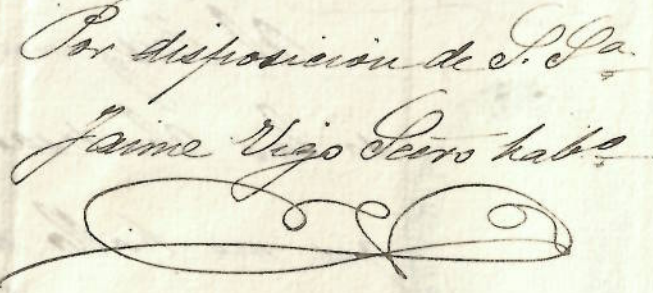 Por disposición de S. Sª.
Jaime Vigo Scrño habº